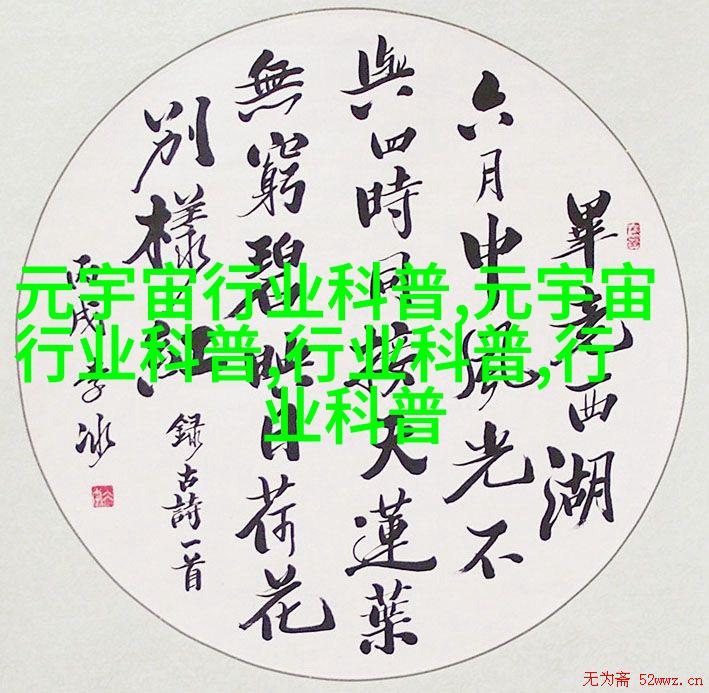 畢竟西湖
六月中風光不
與四時同接天蓮葉
無窮碧映日荷花
別樣紅
錄古詩一首
丙戌 李冰
元宇宙行业科普,元宇宙
行业科普,行业科普,行
业科普
无为斋 52wwz.cn